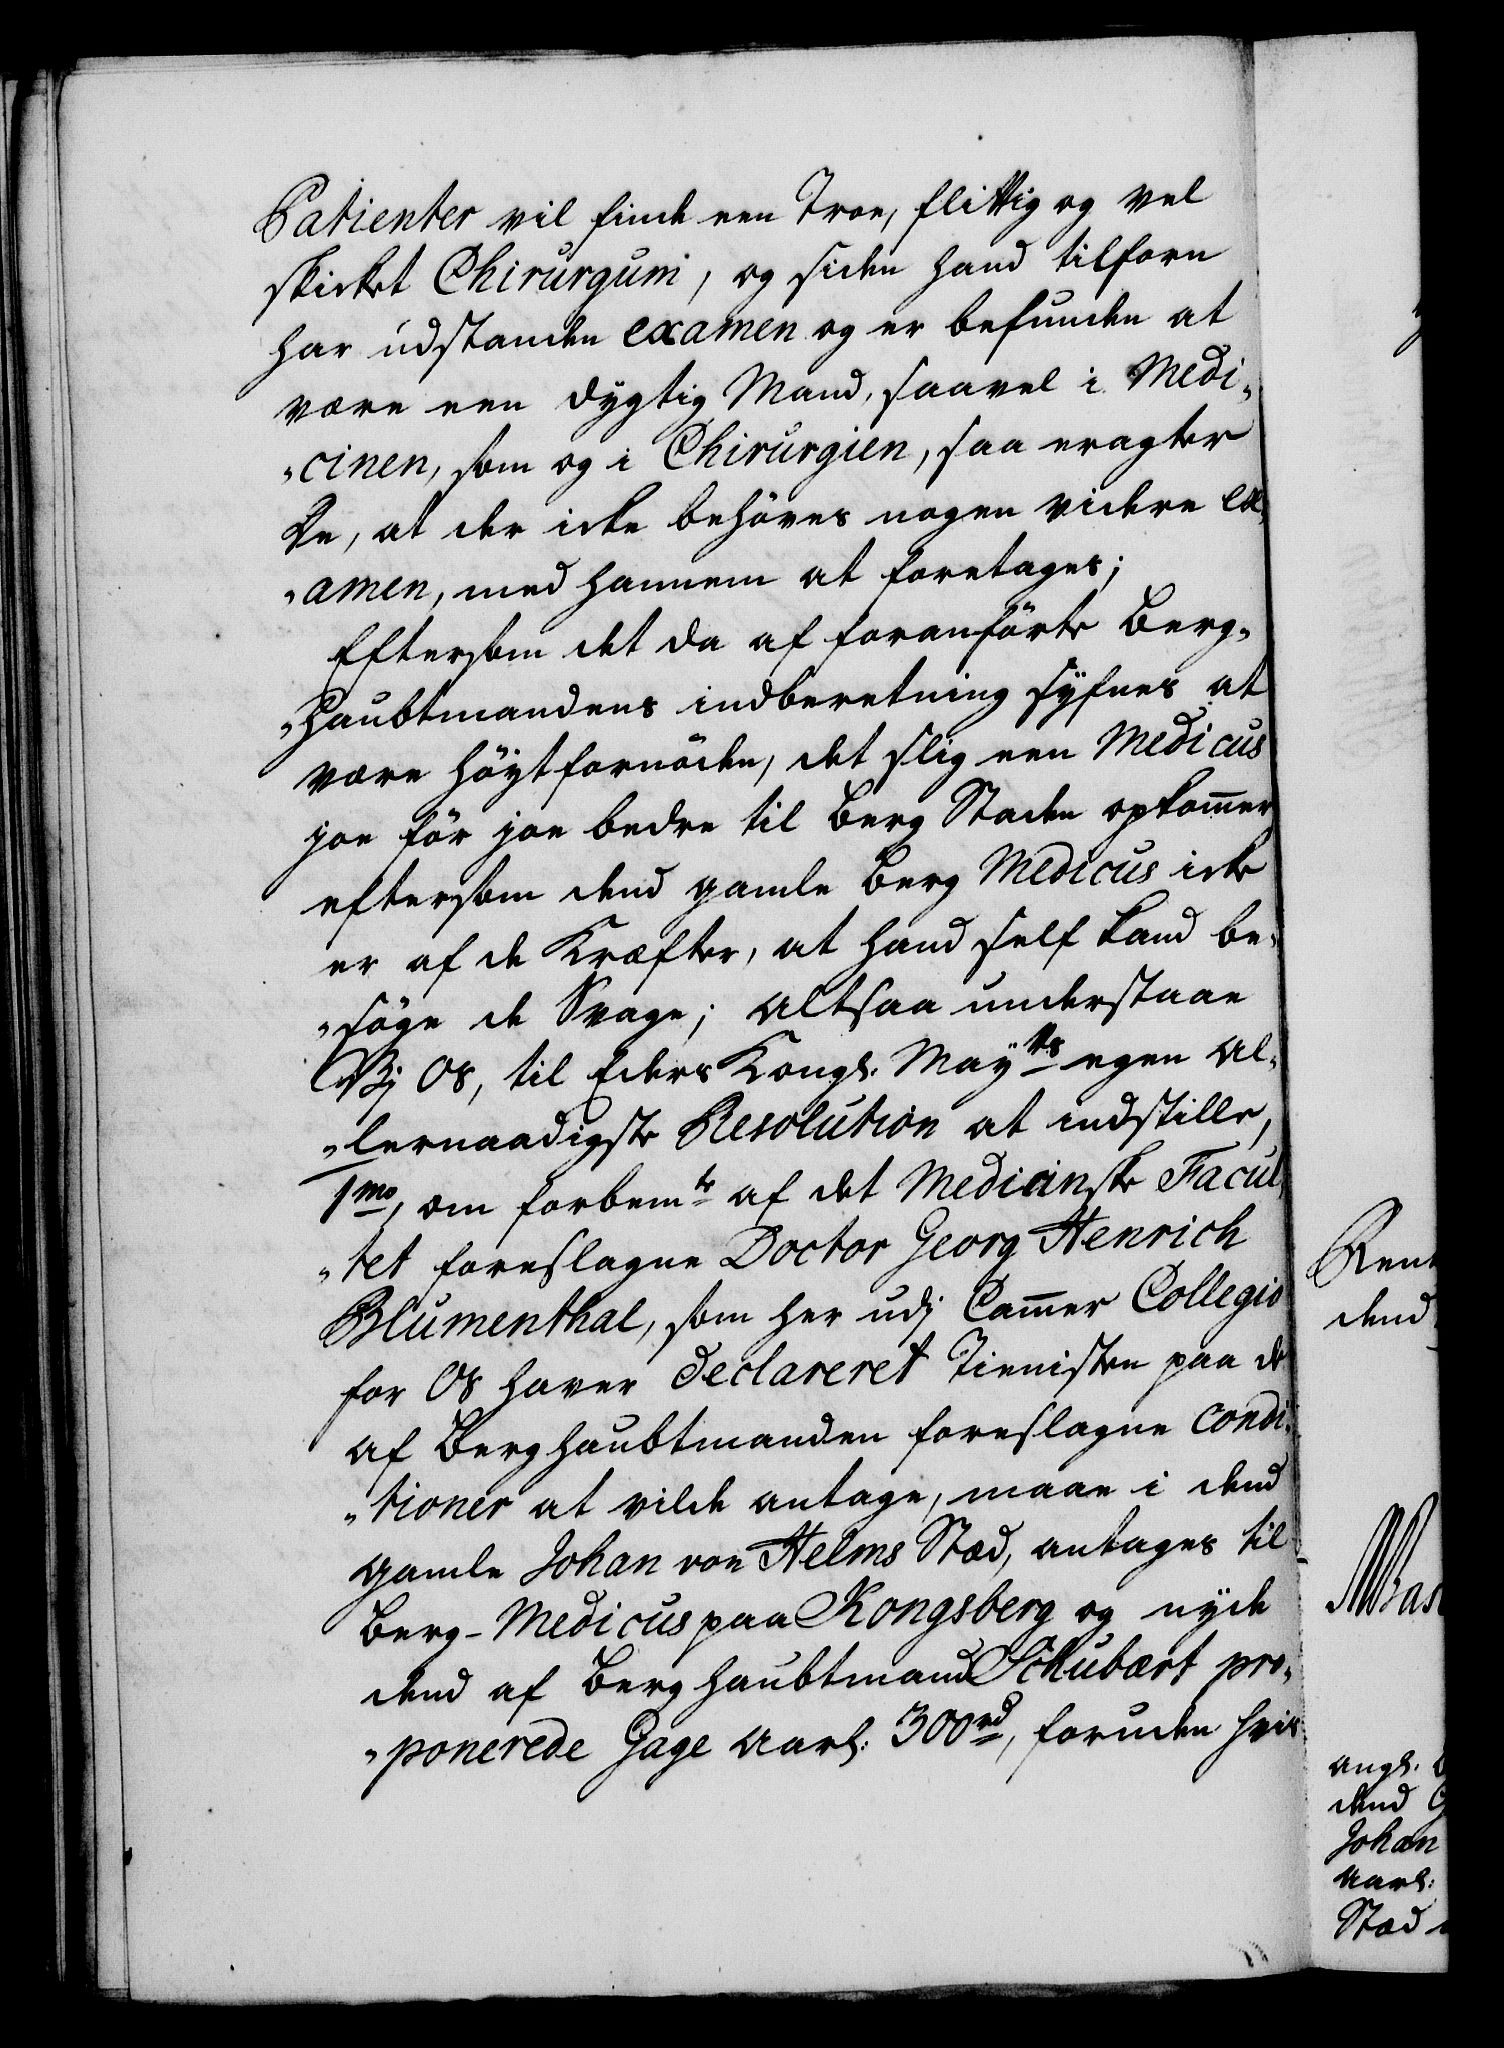 Patienter vil finde een Troe, flittig og vel
skicket Chirurgum, og siden hand tilforn
har udstanden examen og er befunden at
være een dygtig Mand, saavel i Medi„
„cinen, som og i Chirurgien, saa eragter
De, at der icke behöves nogen videre ex„
„amen, med hannem at foretages;
Eftersom det da af foranförte Berg„
„Haubtmandens indberetning synes at
være höyt fornöden, det slig een Medicus
joe för joe bedre til Berg Staden opkom̄er
eftersom dend gamle Berg Medicus icke
er af de Kræfter, at hand self kand be„
„söge de Svage; altsaa understaae
Vj Os, til Eders Kongl. Mayts egen al„
„lernaadigste Resolution at indstille,
1mo, om forbemte af det Medicinske Facul„
„tet foreslagne Doctor Georg Henrich
Blumenthal, som her udj Cam̄er Collegio
for Os haver declareret Tienisten paa de
af Berghaubtmanden foreslagne condi„
„tioner at vilde antage, maae i dend
gamle Johan von Helms Stæd, antages til
Berg-Medicus paa Kongsberg og nyde
dend af Berghaubtmand Schubært pro„
„ponerede Gage aarl: 300rd, foruden hvis
Rent
dend
angl.
dend
Johan
aarl:
Stæd